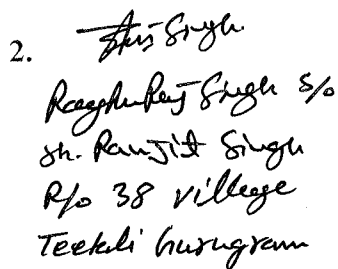 2. Singh
Raghuraj Singh S/o
Sh. Ranjit Singh
R/o 38 village
Teekli Gurugram